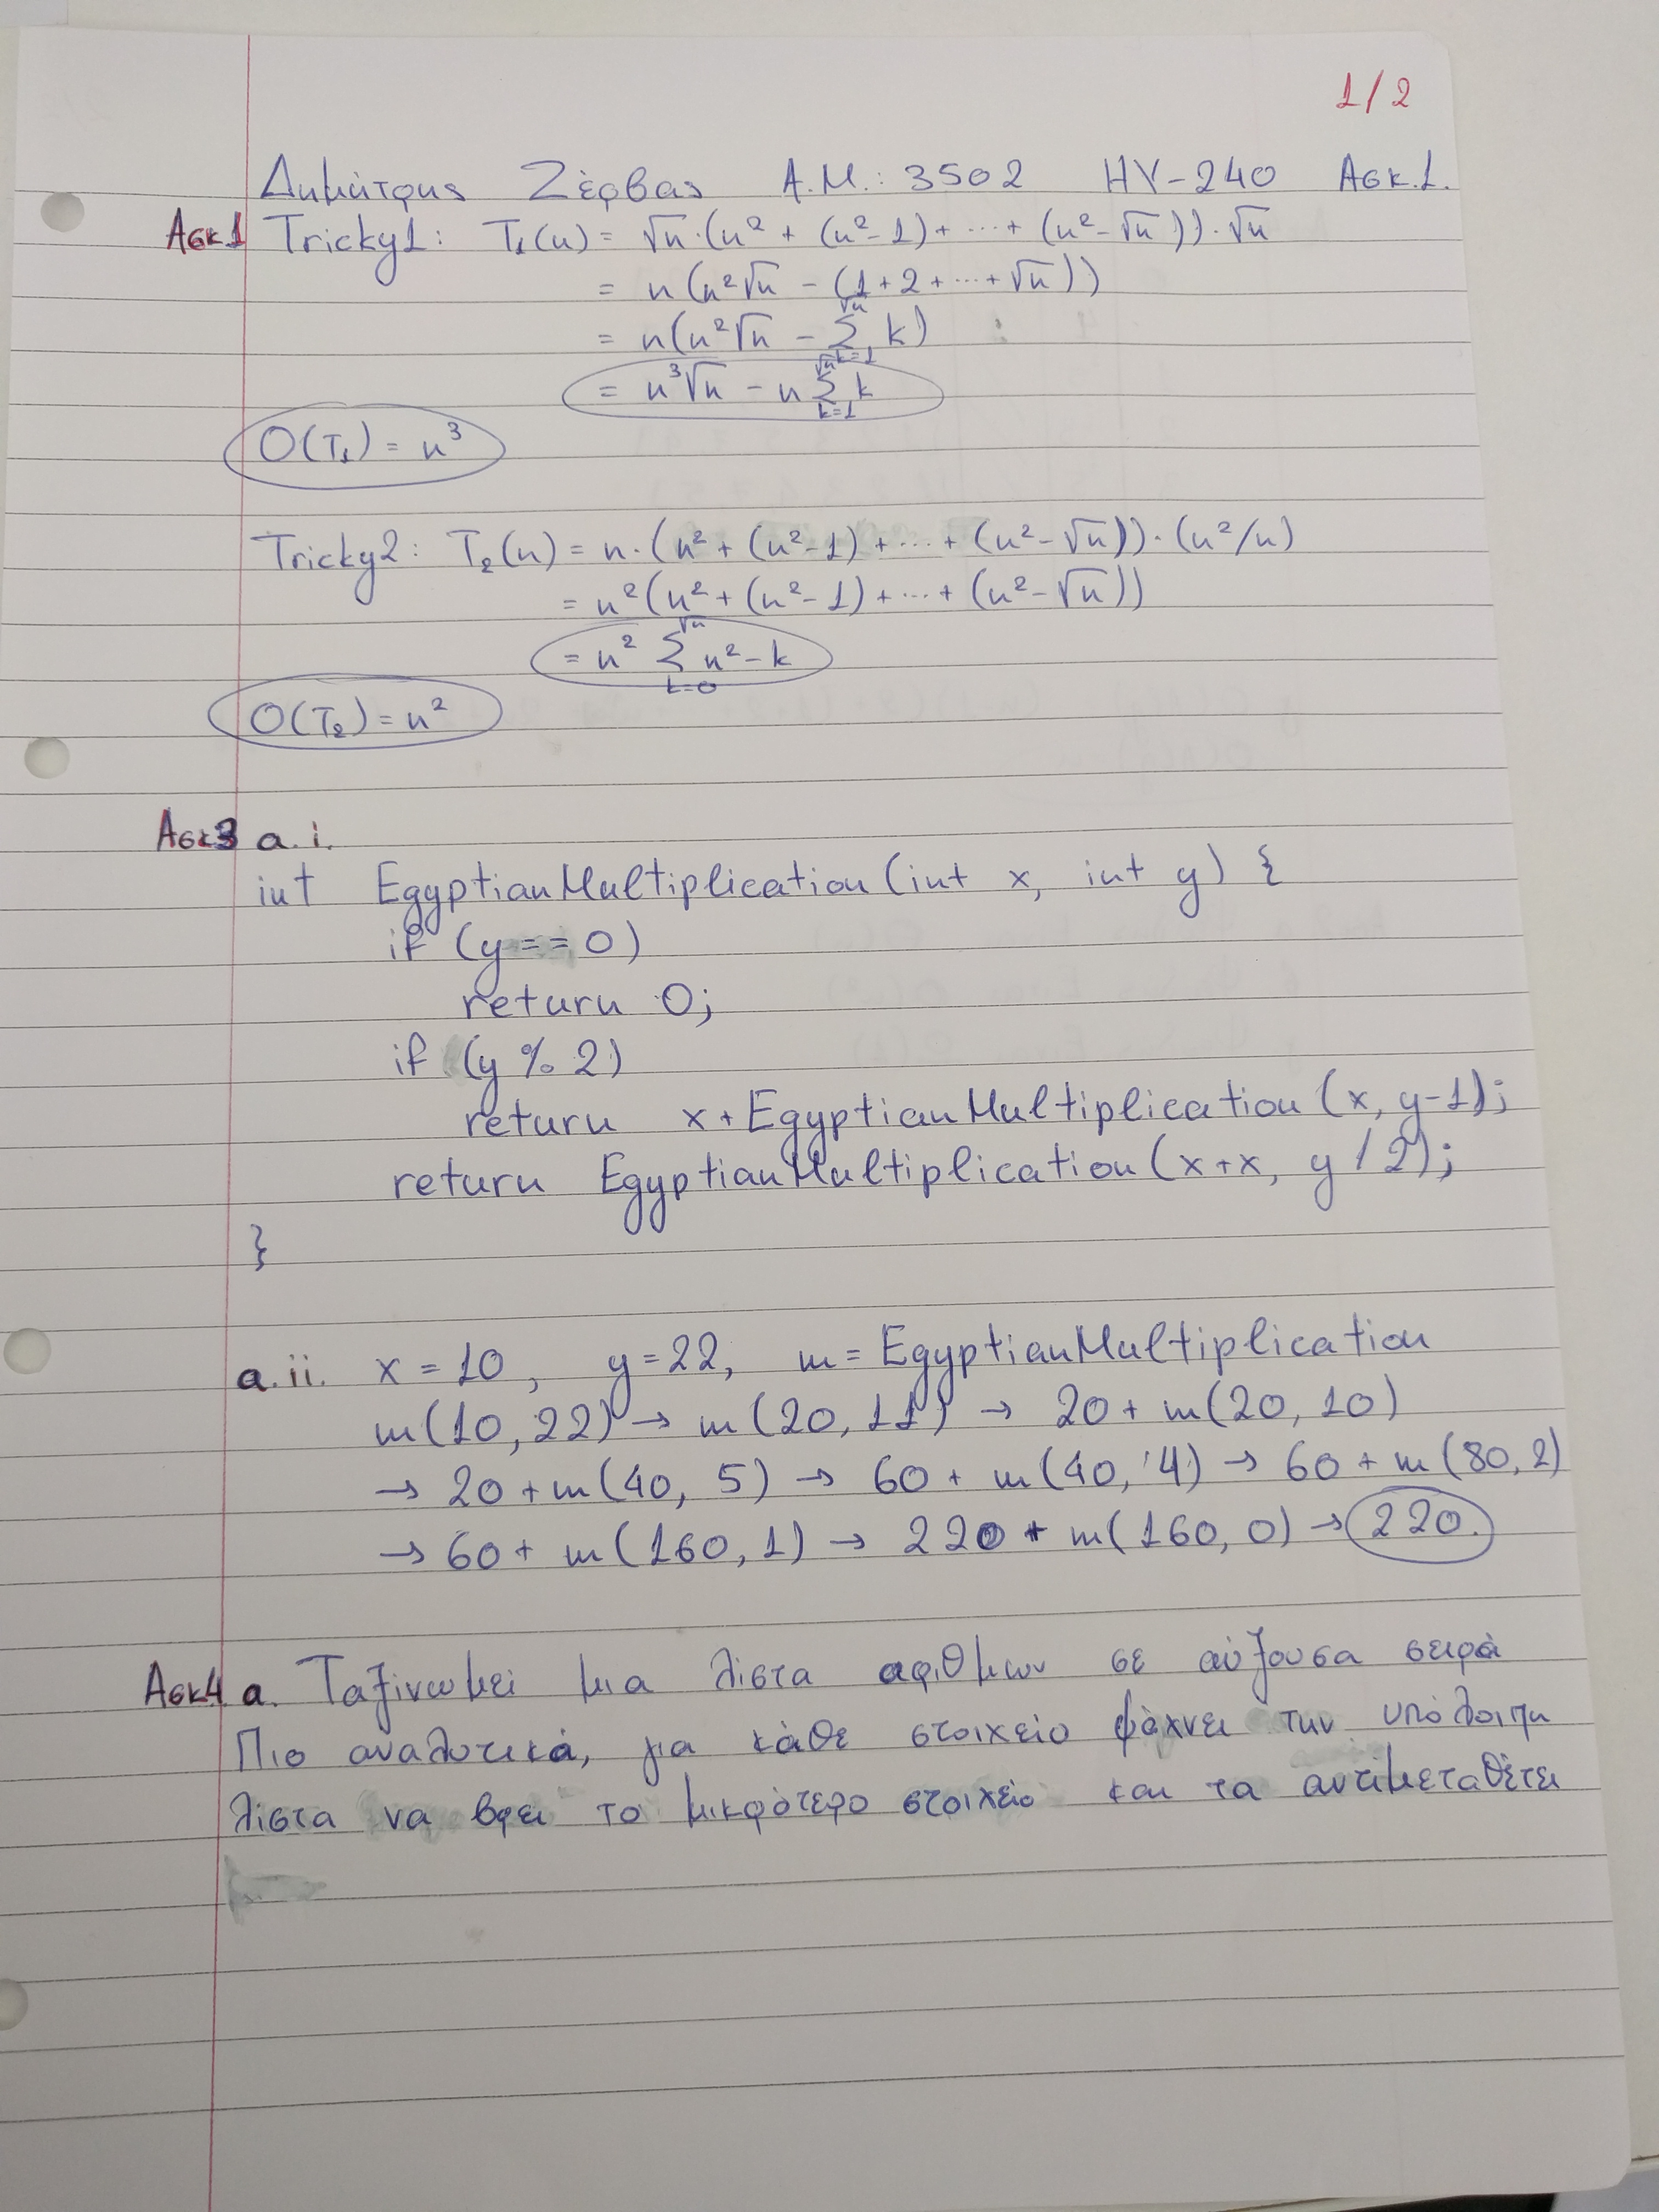 1/2
Δημήτρης Ζέρβας Α.Μ.: 3502 ΗΥ-240 Ασκ.1.
Ασκ1 Tricky1: T₁(n) = √n·(n² + (n²-1)+ ··· + (n²-√n))·√n
= n(n²√n - (1+2+···+√n))
= n(n²√n - Σ_{k=1}^{√n} k)
= n³√n - n Σ_{k=1}^{√n} k
O(T₁) = n³
Tricky2: T₂(n) = n·(n² + (n²-1) + ··· + (n²-√n))·(n²/n)
= n²(n² + (n²-1) + ··· + (n²-√n))
= n² Σ_{k=0}^{√n} n²-k
O(T₂) = n²
Ασκ3 a.i.
int EgyptianMultiplication(int x, int y) {
if (y == 0)
return 0;
if (y % 2)
return x+EgyptianMultiplication(x, y-1);
return EgyptianMultiplication(x+x, y/2);
}
a.ii. x = 10, y = 22, m = EgyptianMultiplication
m(10, 22) → m(20, 11) → 20 + m(20, 10)
→ 20 + m(40, 5) → 60 + m(40, 4) → 60 + m(80, 2)
→ 60 + m(160, 1) → 220 + m(160, 0) → 220.
Ασκ4 a. Ταξινωμεί μια λίστα αριθμων σε αύξουσα σειρά
Πιο αναλυτικά, για κάθε στοιχείο ψάχνει την υπόλοιπη
λίστα να βρει το μικρότερο στοιχείο και τα αντιμεταθέτει